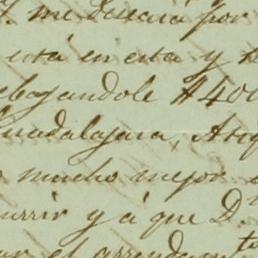 me deseará por
está en esta y
rebajandole $400
Guadalajara,
mucho mejor
currir y á que D.
el arrendam.to